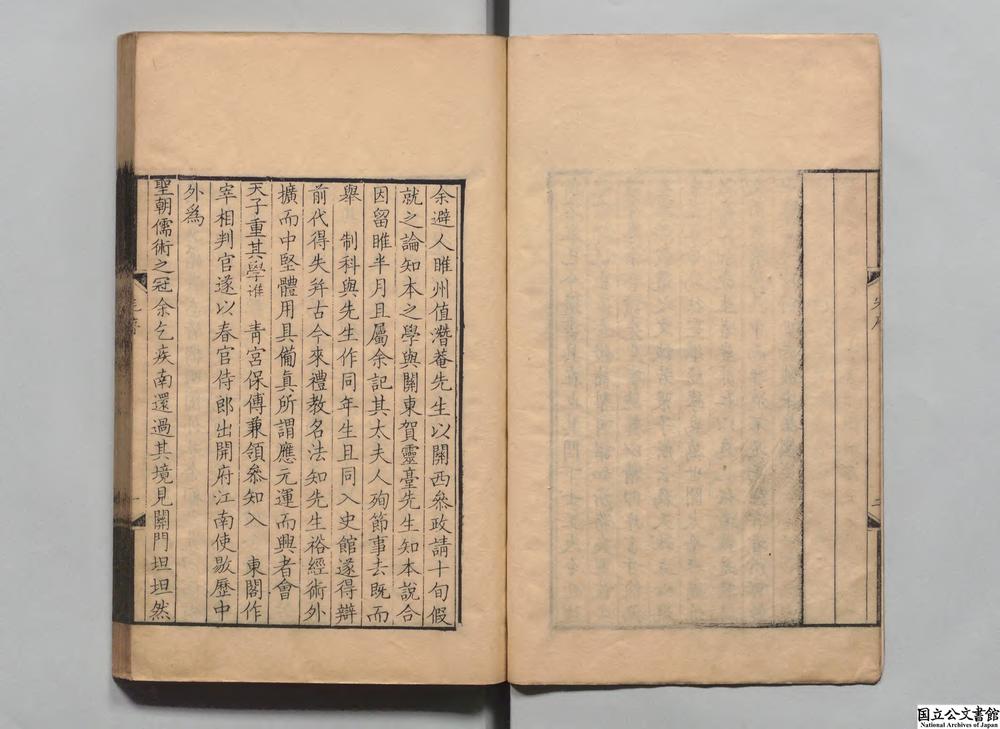 余避人睢州值潛菴先生以關西叅政請十旬假
就之論知本之學與關東賀靈臺先生知本說合
因留睢半月且屬余記其太夫人殉節事去既而
舉 制科與先生作同年生且同入史館遂得辯
前代得失幷古今來禮教名法知先生裕經術外
擴而中堅體用具備眞所謂應元運而興者會
天子重其學進 青宮保傅兼領叅知入 東閣作
宰相判官遂以春官侍郎出開府江南使敭歷中
外爲
聖朝儒術之冠余乞疾南還過其境見關門坦坦然
国立公文書館
National Archives of Japan